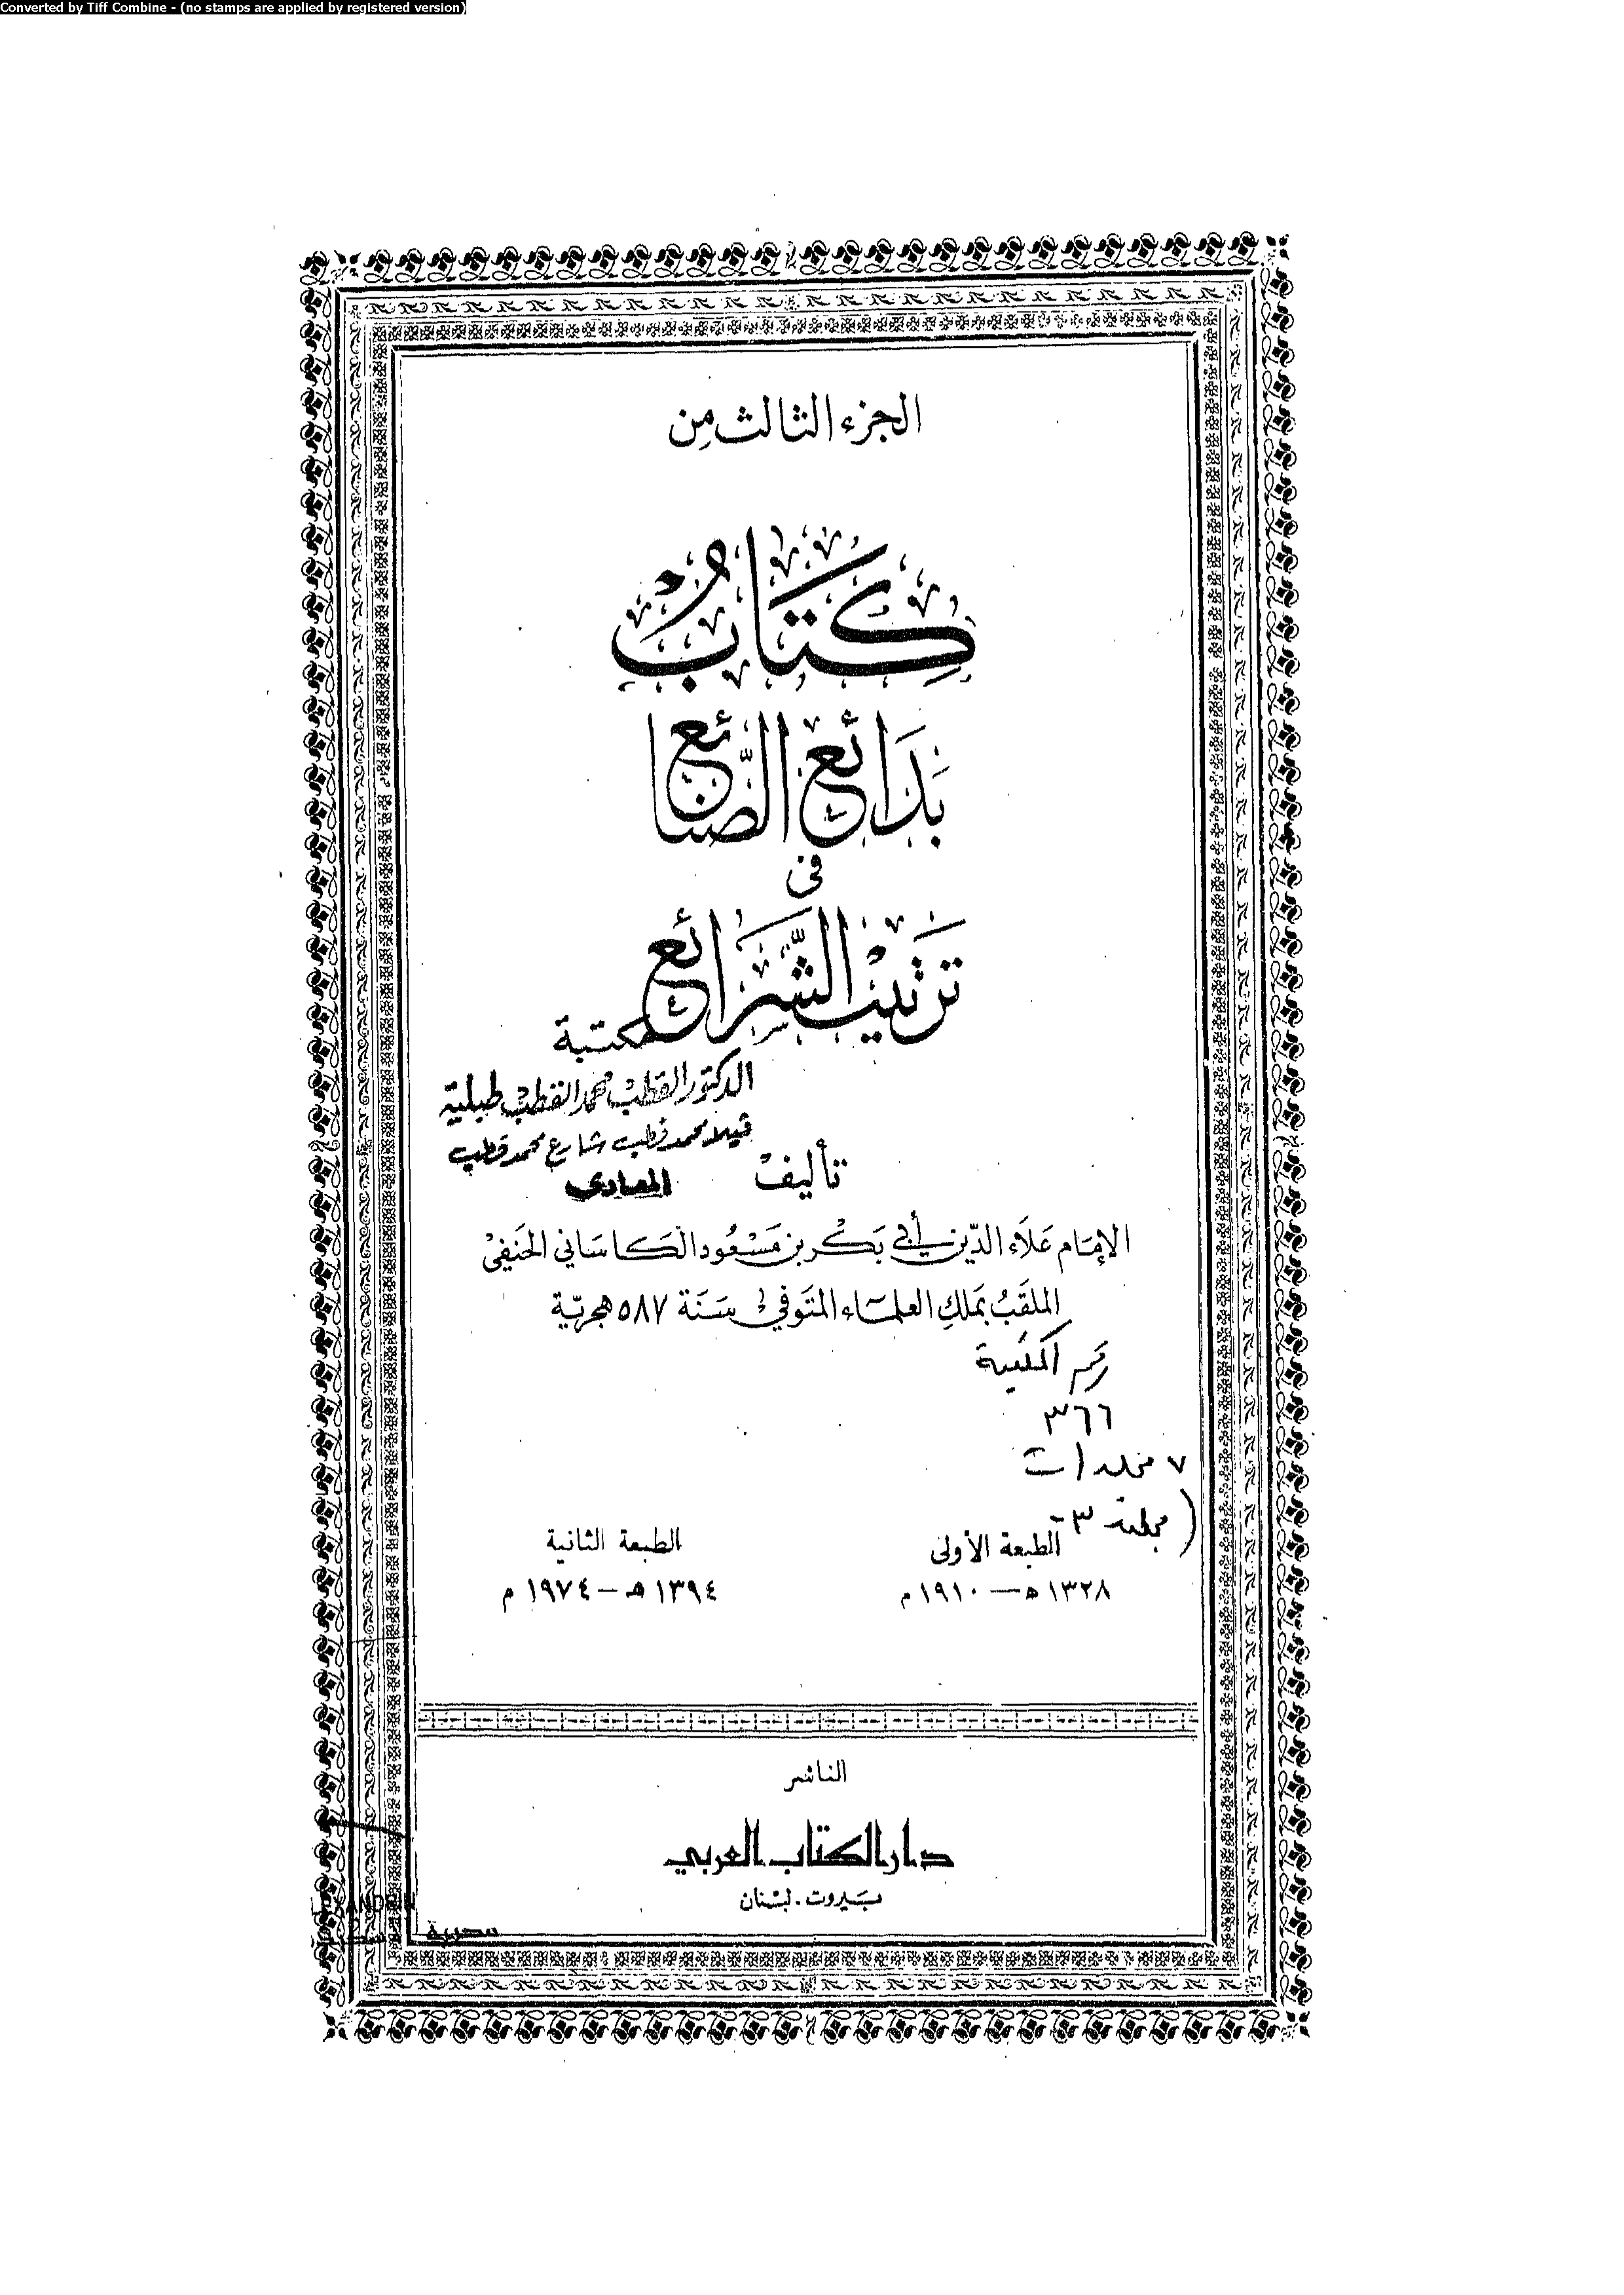 Converted by Tiff Combine - (no stamps are applied by registered version)
الجزء الثالث من
كتاب
بدائع الصنائع
فى
ترتيب الشرائع
مكتبة
الدكتور القطب محمد القطب طبلية
فيلا محمد قطب شارع محمد قطب
المعادى
تأليف
الإمام علاء الدين أبي بكر بن مسعود الكاساني الحنفي
الملقب بملك العلماء المتوفى سنة ٥٨٧ هجرية
رقم المكتبة
٣٦٦
٧ مجلدات
٣
الطبعة الأولى
١٣٢٨ ه — ١٩١٠ م
الطبعة الثانية
١٣٩٤ هـ — ١٩٧٤ م
الناشر
دار الكتاب العربي
بيروت . لبنان